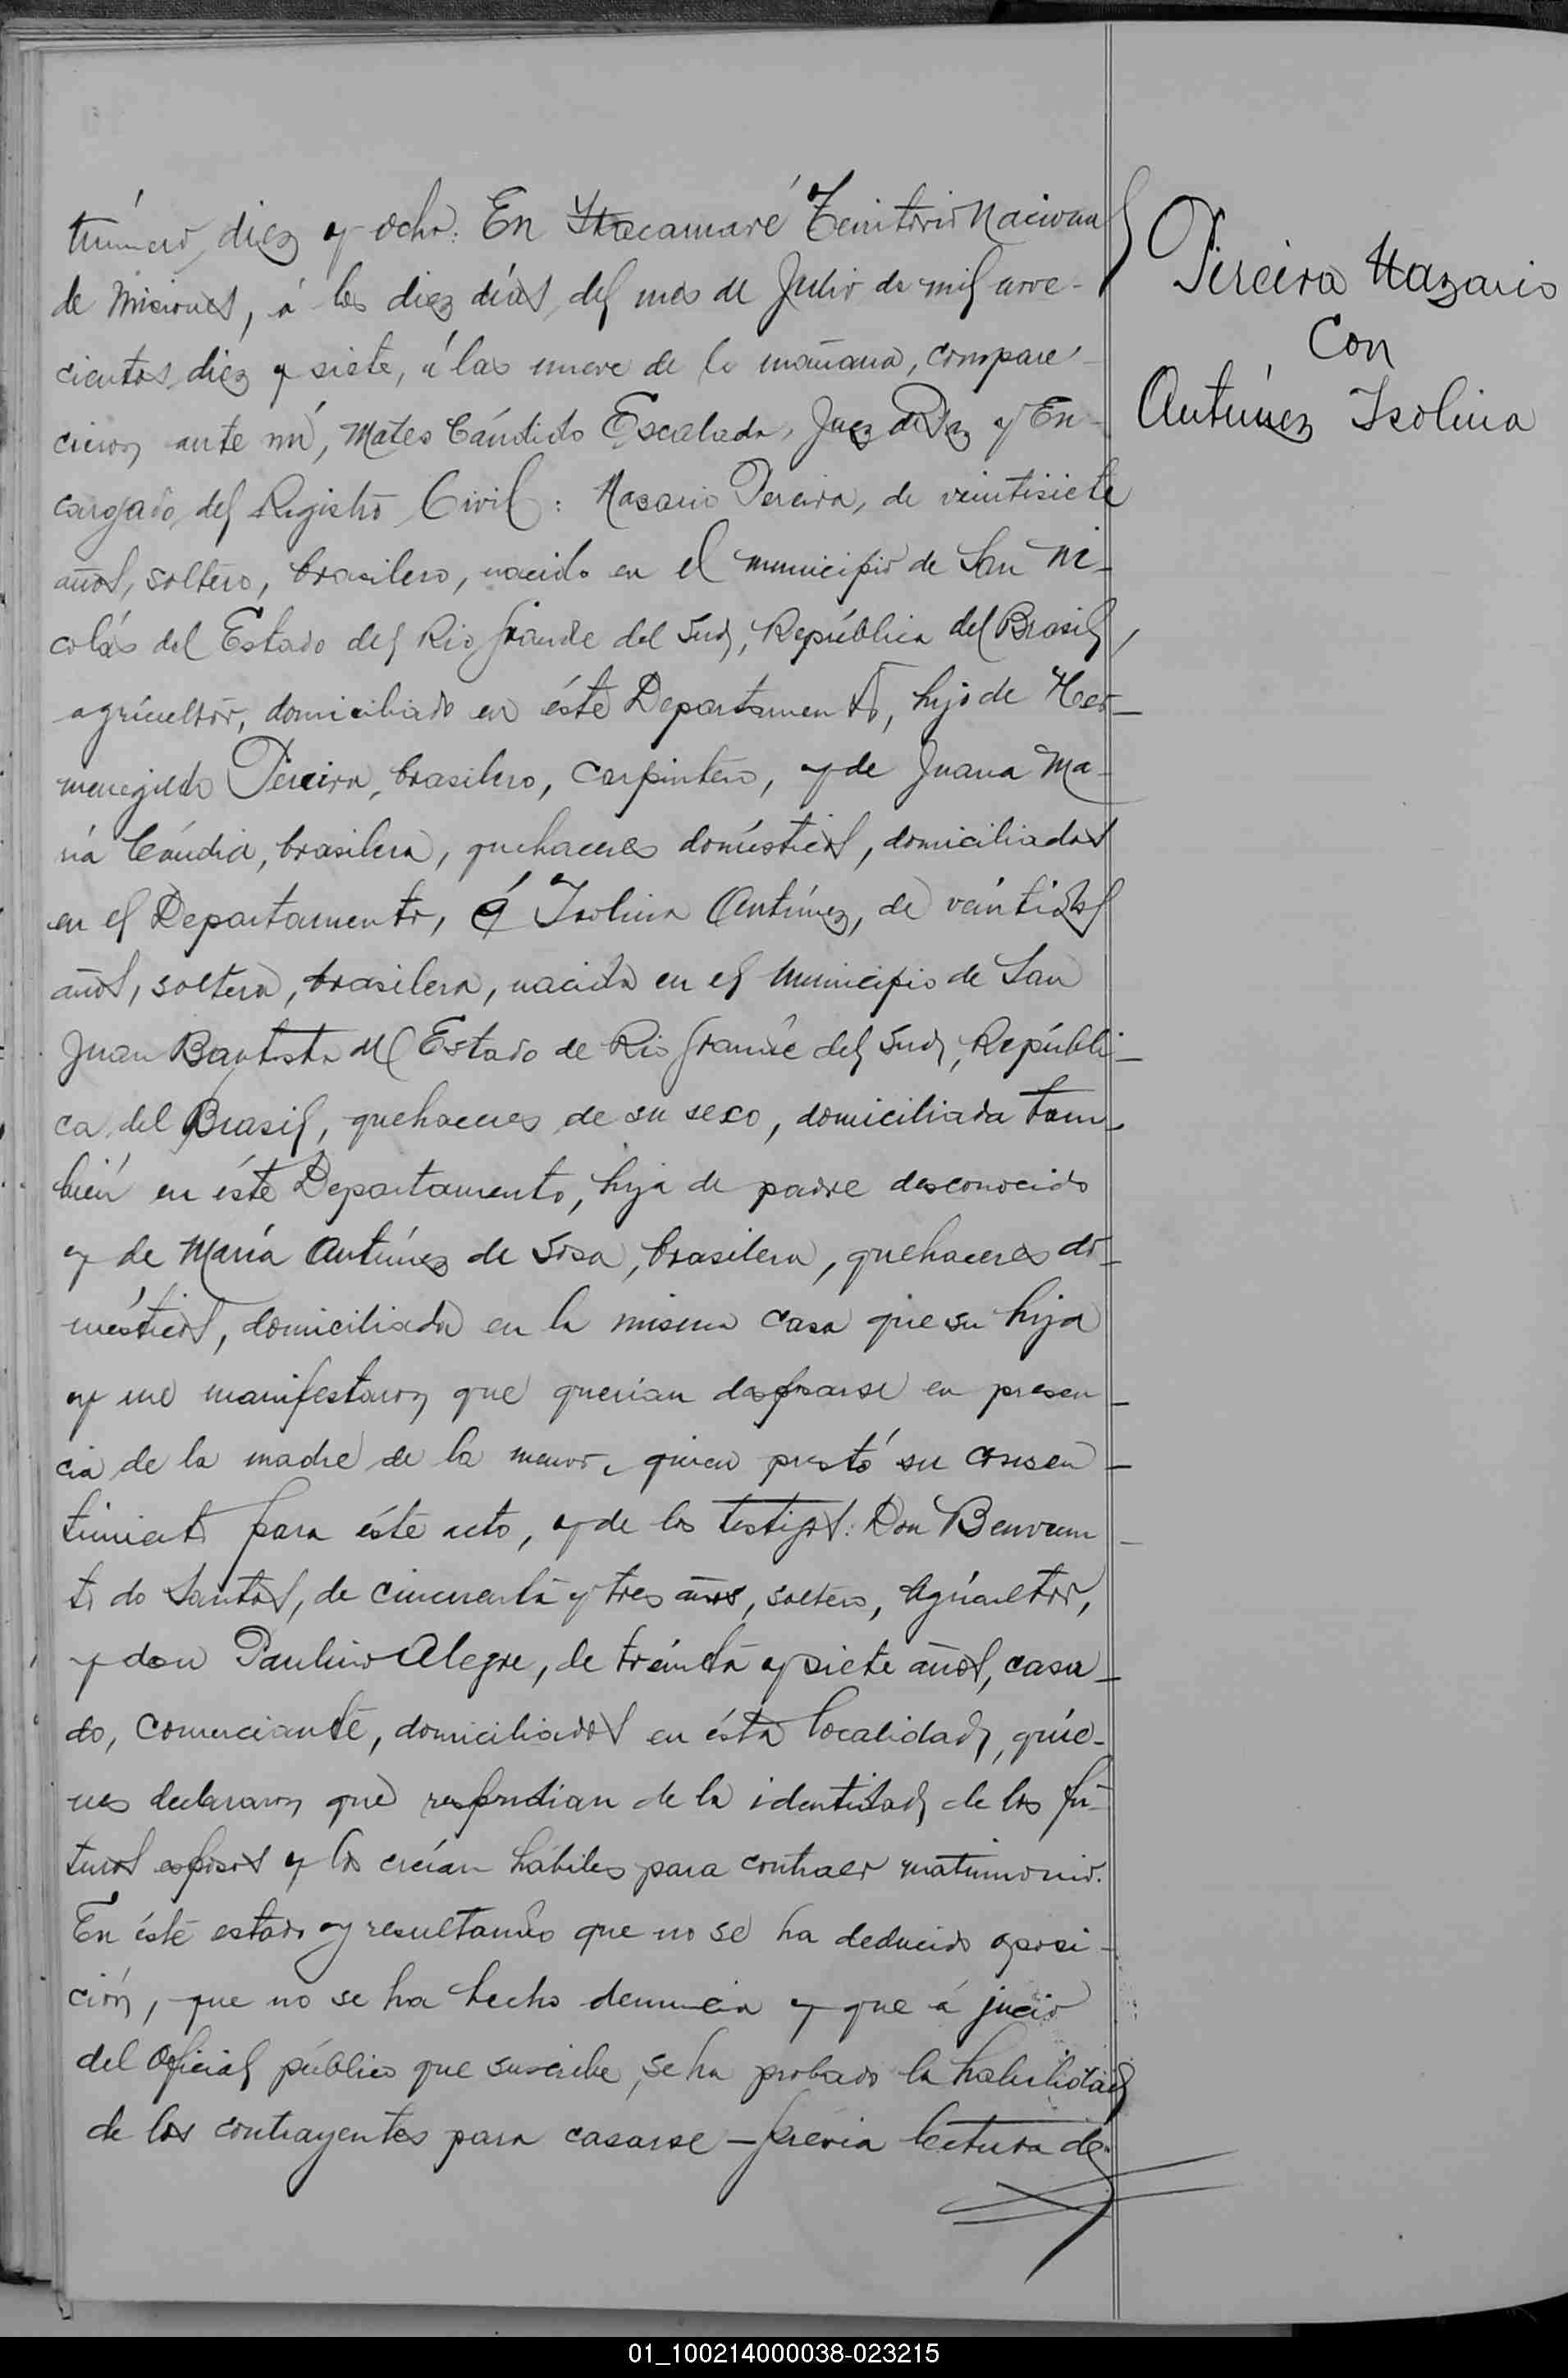 Número diez y ocho: En Itacaruaré Territorio Nacional
de Misiones, á los diez días del mes de Julio de mil nove-
cientos diéz y siete, á las nueve de la mañana, compare-
cieron ante mí, Mateo Cándido Escalada, Juez de Paz y En-
cargado del Registro Civil: Nazario Pereira, de veintisiete
años, soltero, brasilero, nacido en el municipio de San Ni-
colás del Estado del Rio Grande del Sud, República del Brasil,
agricultor, domiciliado en éste Departamento, hijo de Her-
menegildo Pereira, brasilero, carpintero, y de Juana Ma-
ría Cándia, brasilera, quehaceres domésticos, domiciliados
en el Departamento, é Isolina Antúnez, de veintidos
años, soltera, brasilera, nacida en el Municipio de San
Juan Bautista del Estado de Rio Grande del Sud, Repúbli-
ca del Brasil, quehaceres de su sexo, domiciliada tam-
bién en éste Departamento, hija de padre desconocido
y de María Antúnez de Sosa, brasilera, quehaceres do-
mésticos, domiciliada en la misma casa que su hija
y me manifestaron que querian desposarse en presen-
cia de la madre de la menor, quien prestó su consen-
timiento para éste acto, y de los testigos: Don Benvenu
to do Santos, de cincuenta y tres años, soltero, agricultor,
y don Paulino Alegre, de treinta y siete años, casa-
do, comerciante, domiciliados en ésta localidad, quie-
nes declararon que respondian de la identidad de los fu-
turos esposos y los creían hábiles para contraer matrimonio.
En éste estado y resultando que no se ha deducido oposi-
ción, que no se ha hecho denuncia y que á jucio
del Oficial público que suscribe, se ha probado la habilidad
de los contrayentes para casarse – prévia lectura de
Pereira Nazario
Con
Antúnez Isolina
01_100214000038-023215